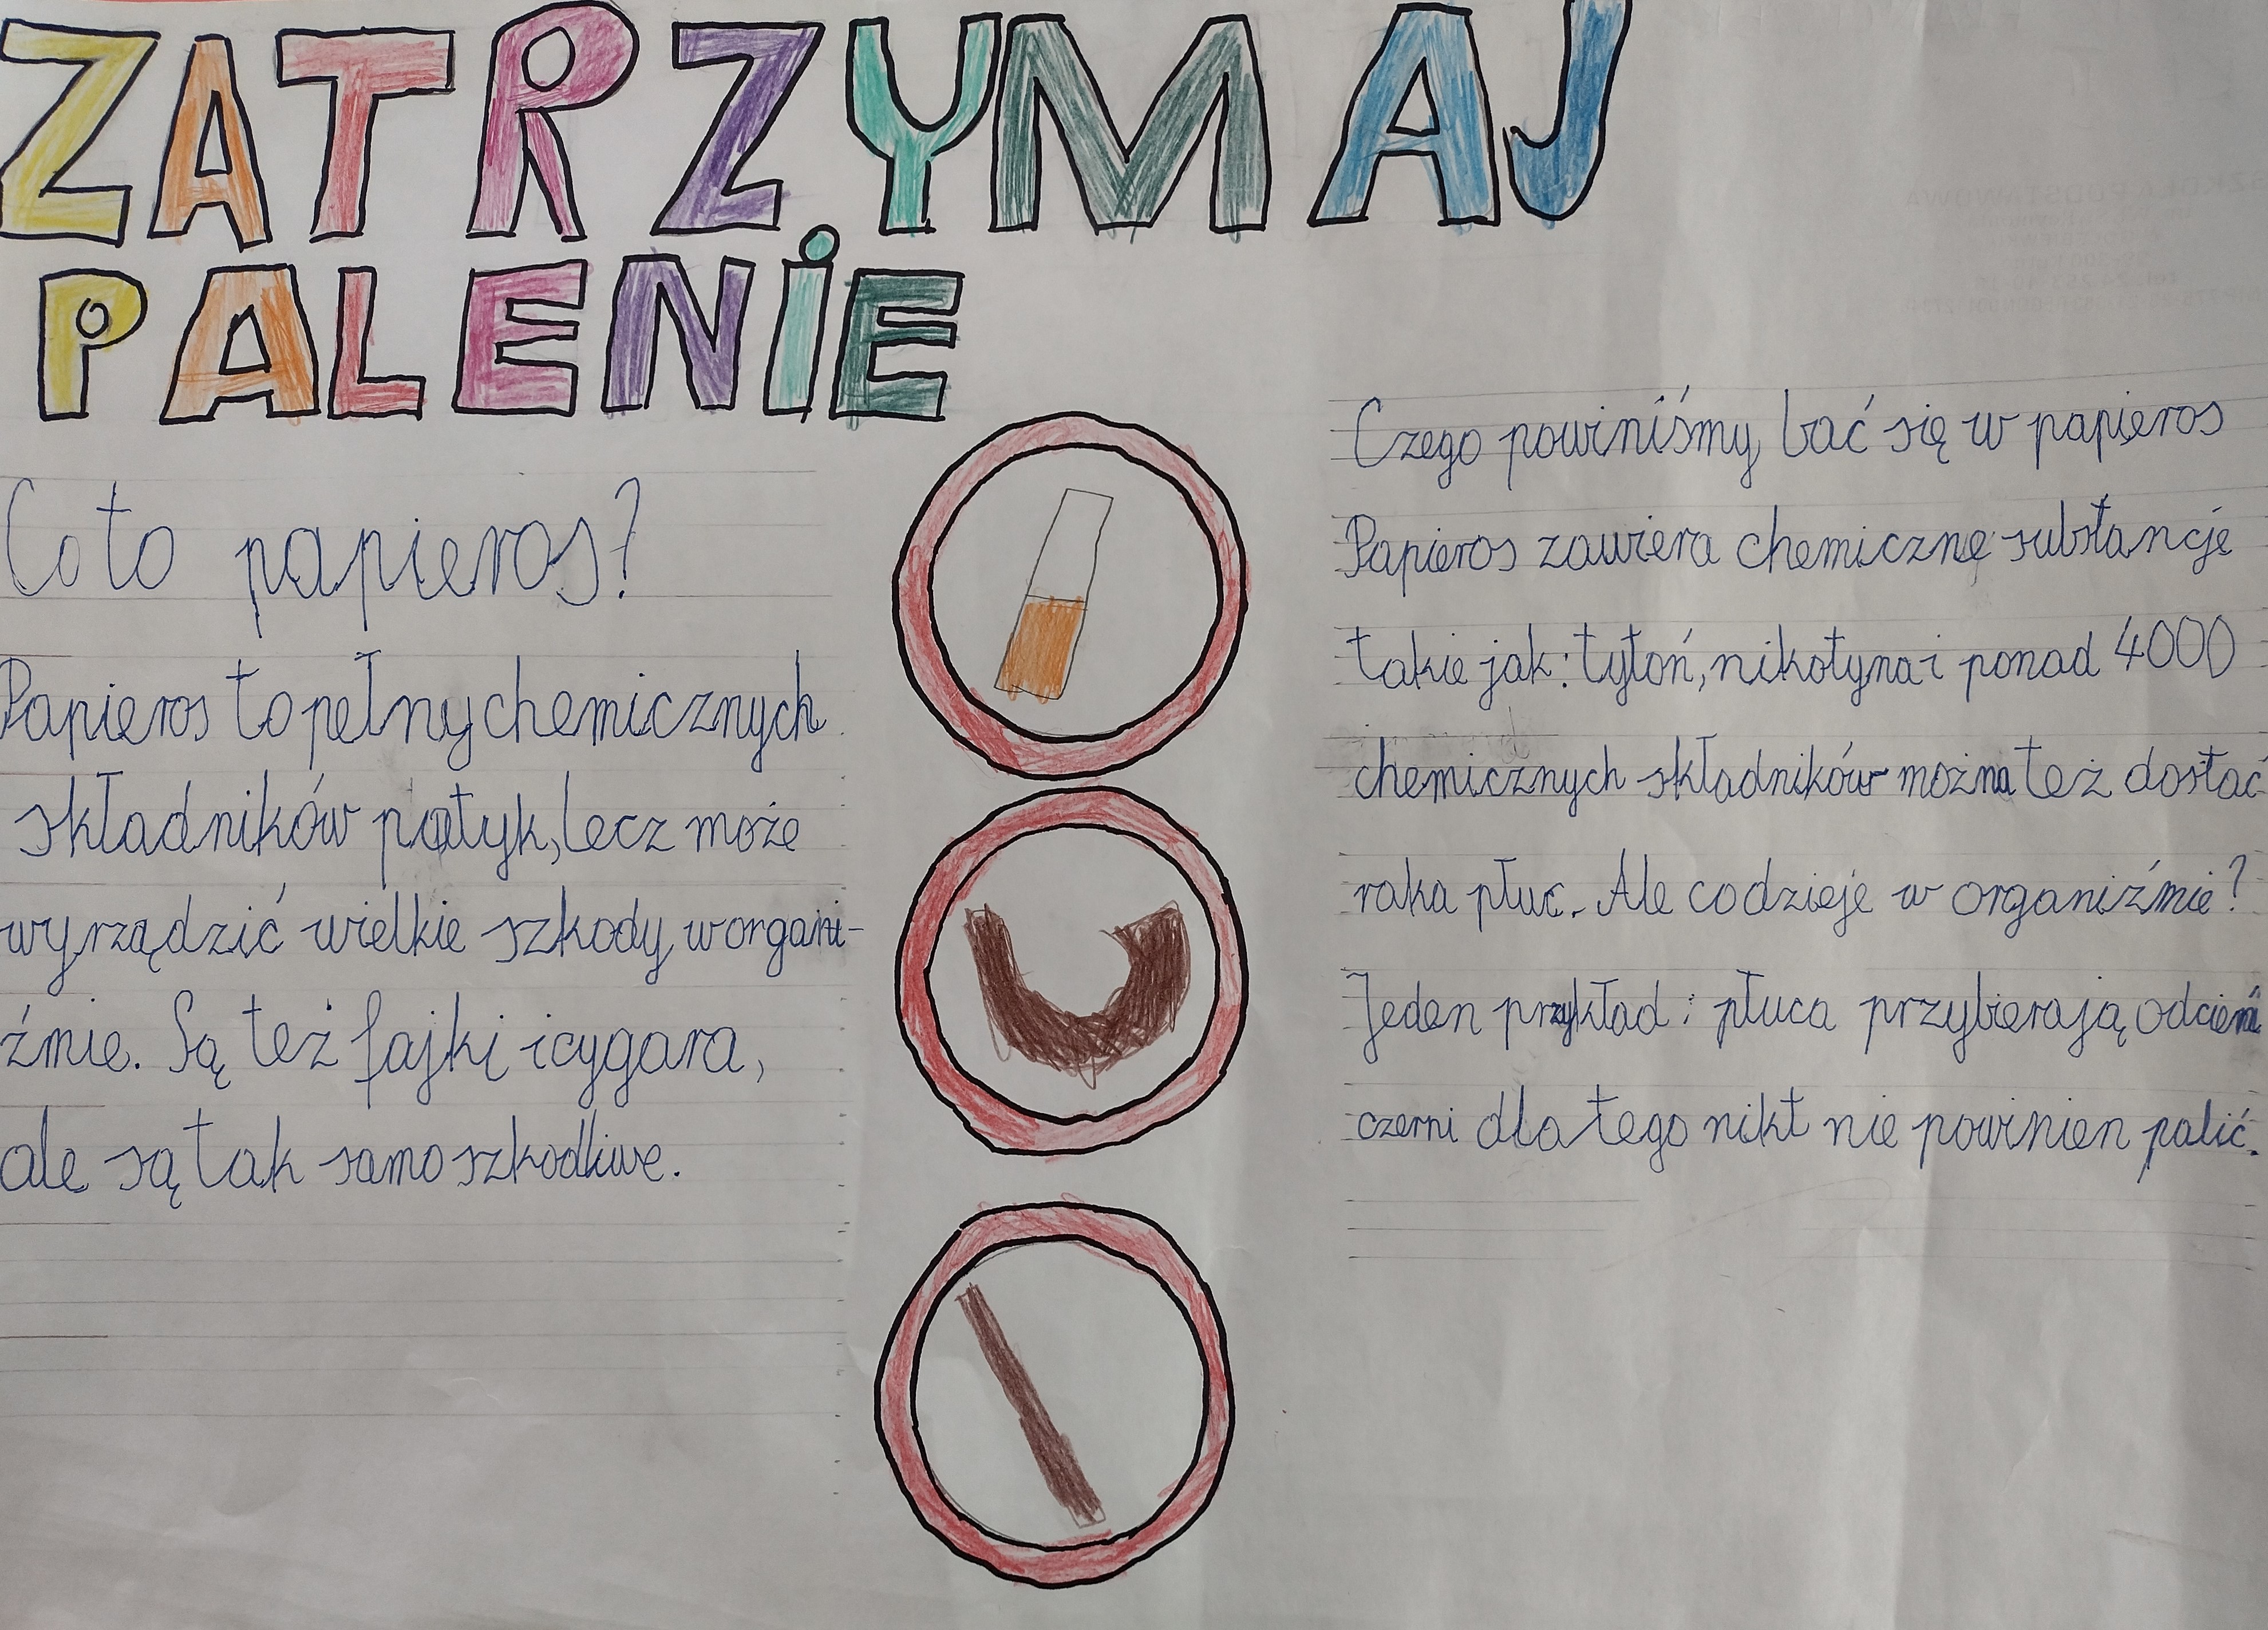 ZATRZYMAJ
PALENiE
Co to papieros?
Papieros to pełny chemicznych
składników patyk, lecz może
wyrządzić wielkie szkody w organi-
źmie. Są też fajki i cygara,
ale są tak samo szkodliwe.
Czego powiniśmy bać się w papieros
Papieros zawiera chemiczne substancje
takie jak: tytoń, nikotyna i ponad 4000
chemicznych składników można też dostać
raka płuc. Ale co dzieje w organiźmie?
Jeden przykład: płuca przybierają odcień
czerni dla tego nikt nie powinien palić.